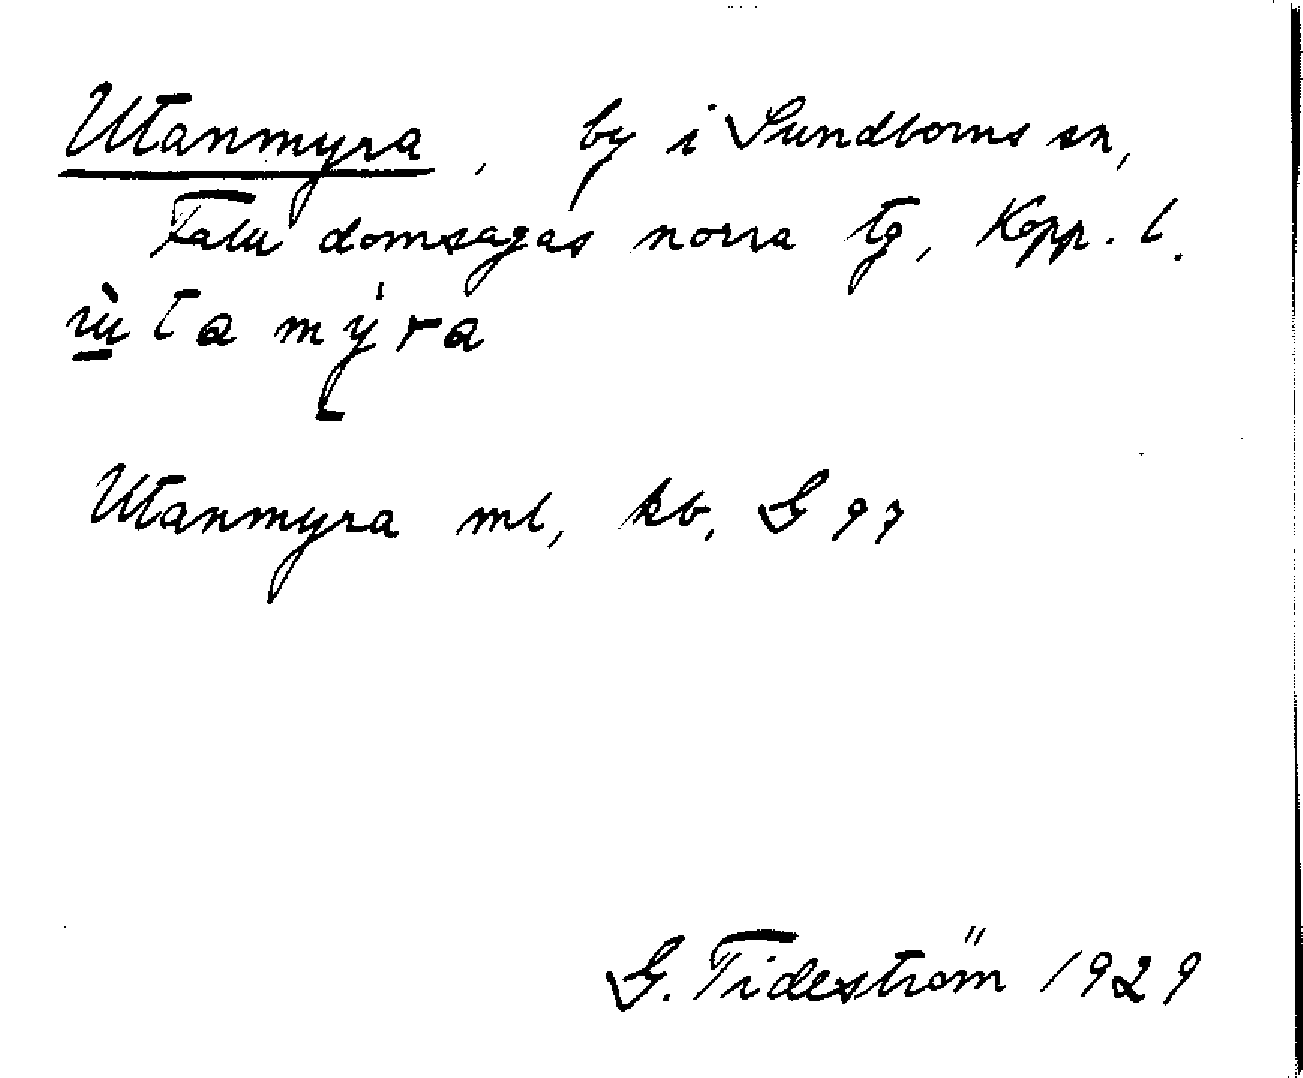 Utanmyra, by i Sundborns sn,
Falu domsagas norra tg, Kopp. l.
ùtamýra
Utanmyra ml, kb, G 97
G. Tideström 1929